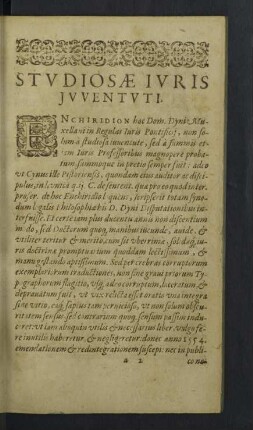 STVDIOSÆ IVRIS
JVVENTVTI.
ENCHIRIDION hoc Dom. Dyni Mu-
xellani in Regulas Iuris Pontificij, non so-
lùm à studiosa iuuentute, sed à summis et-
iam Iuris Professoribus magnoperè proba-
tum summoque in pretio semper fuit: adeò
vt Cynus ille Pistoriensis, quondam eius auditor ac disci-
pulus, in l. vnica q. ij. C. de
proser. ad hoc Enchiridiū quasi, scripserit totam
dum l. gallus Philosophi D. Dyni Disputationibus in-
terfuisse. Et certè iam plus ducentis annis non discentium
modo, sed Doctorum quoq; manibus
vtiliter teritur & meritò, cum sit vberrima
ris doctrina promptuarium quoddam lectissimum, &
manu gestando aptissimum. Sed per crebras corruptorum
exemplarium traductiones, non sine graui priorum Ty-
pographorum flagitio, vsq; adeo corruptum, laceratum &
deprauatum fuit, vt vix relicta esset oratio vna integra
sine vitio, eoq; sæpius tam pernicioso, vt non solùm obscu-
ritatem sensus, sed contrarium quoq; sensum passim indu-
ceret: vt iam vtilis & necessarius liber, vulgò fe-
rè inutilis haberetur, & negligeretur: donec anno 1554.
emendationem & redintegrationem suscepi: nec in publi-
a 2 cona-